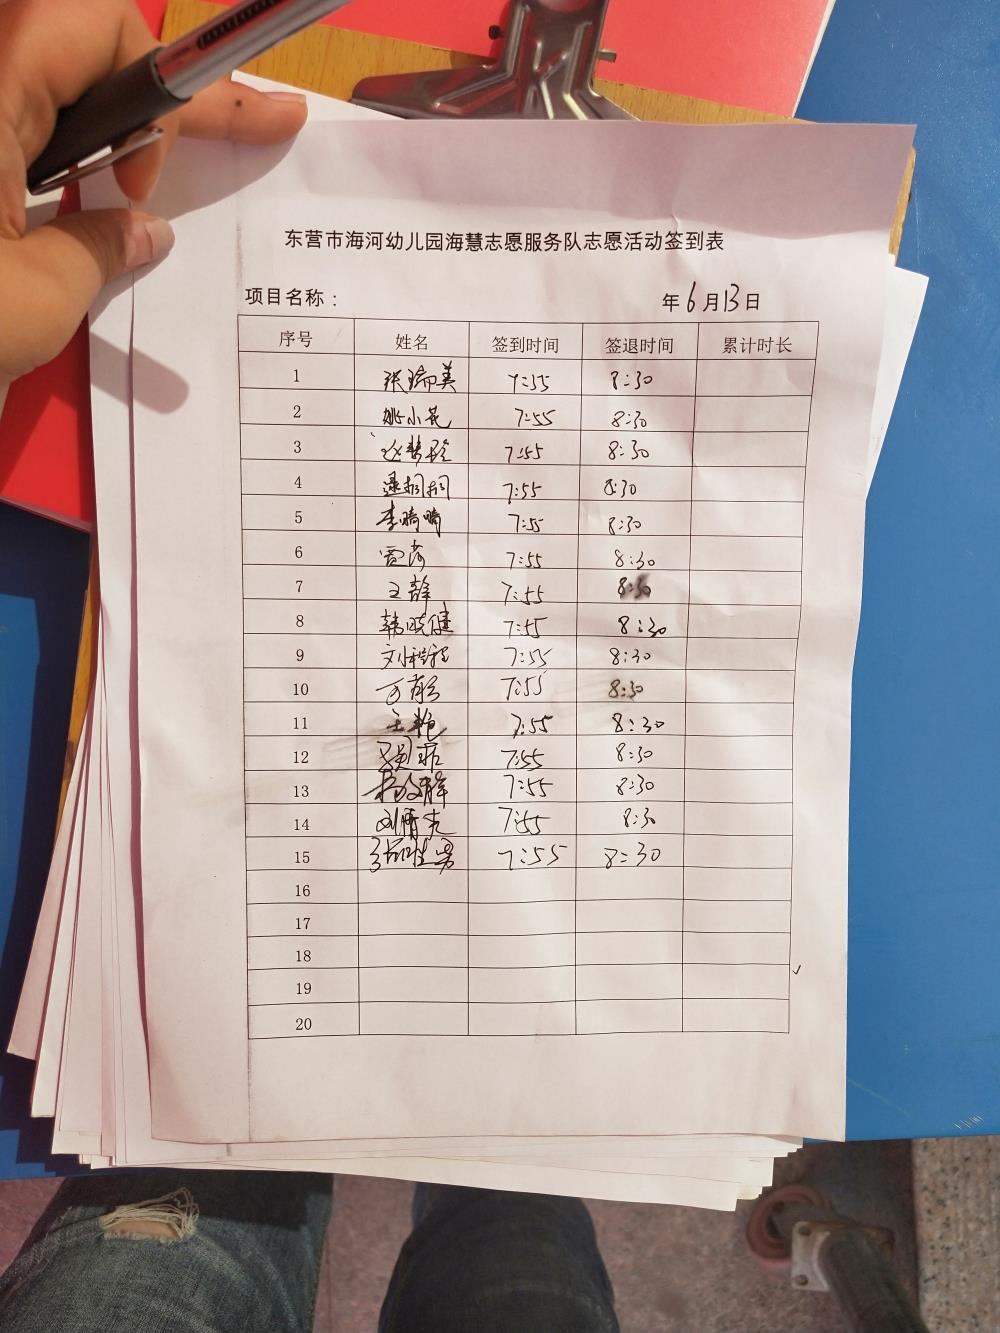 东营市海河幼儿园海慧志愿服务队志愿活动签到表
项目名称： 年6月13日
序号 姓名 签到时间 签退时间 累计时长
1 张瑞美 7:55 8:30
2 姚小花 7:55 8:30
3 赵梦玲 7:55 8:30
4 逯桐桐 7:55 8:30
5 李晴晴 7:55 8:30
6 贾芳 7:55 8:30
7 王静 7:55 8:30
8 韩晓健 7:55 8:30
9 刘程程 7:55 8:30
10 7:55 8:30
11 王艳 7:55 8:30
12 7:55 8:30
13 杨文静 7:55 8:30
14 刘倩 7:55 8:30
15 张胜男 7:55 8:30
16
17
18
19
20